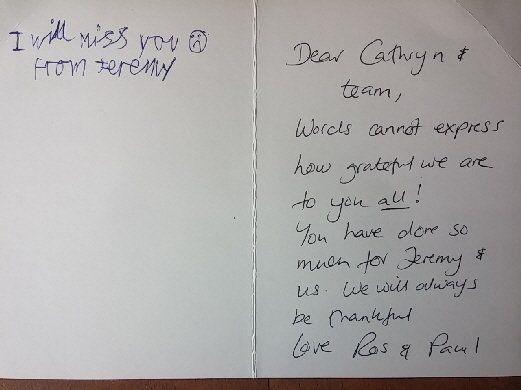 I will miss you ☹
from Jeremy
Dear Cathryn &
team,
Words cannot express
how grateful we are
to you all!
You have done so
much for Jeremy &
us. We will always
be thankful
Love Ros & Paul